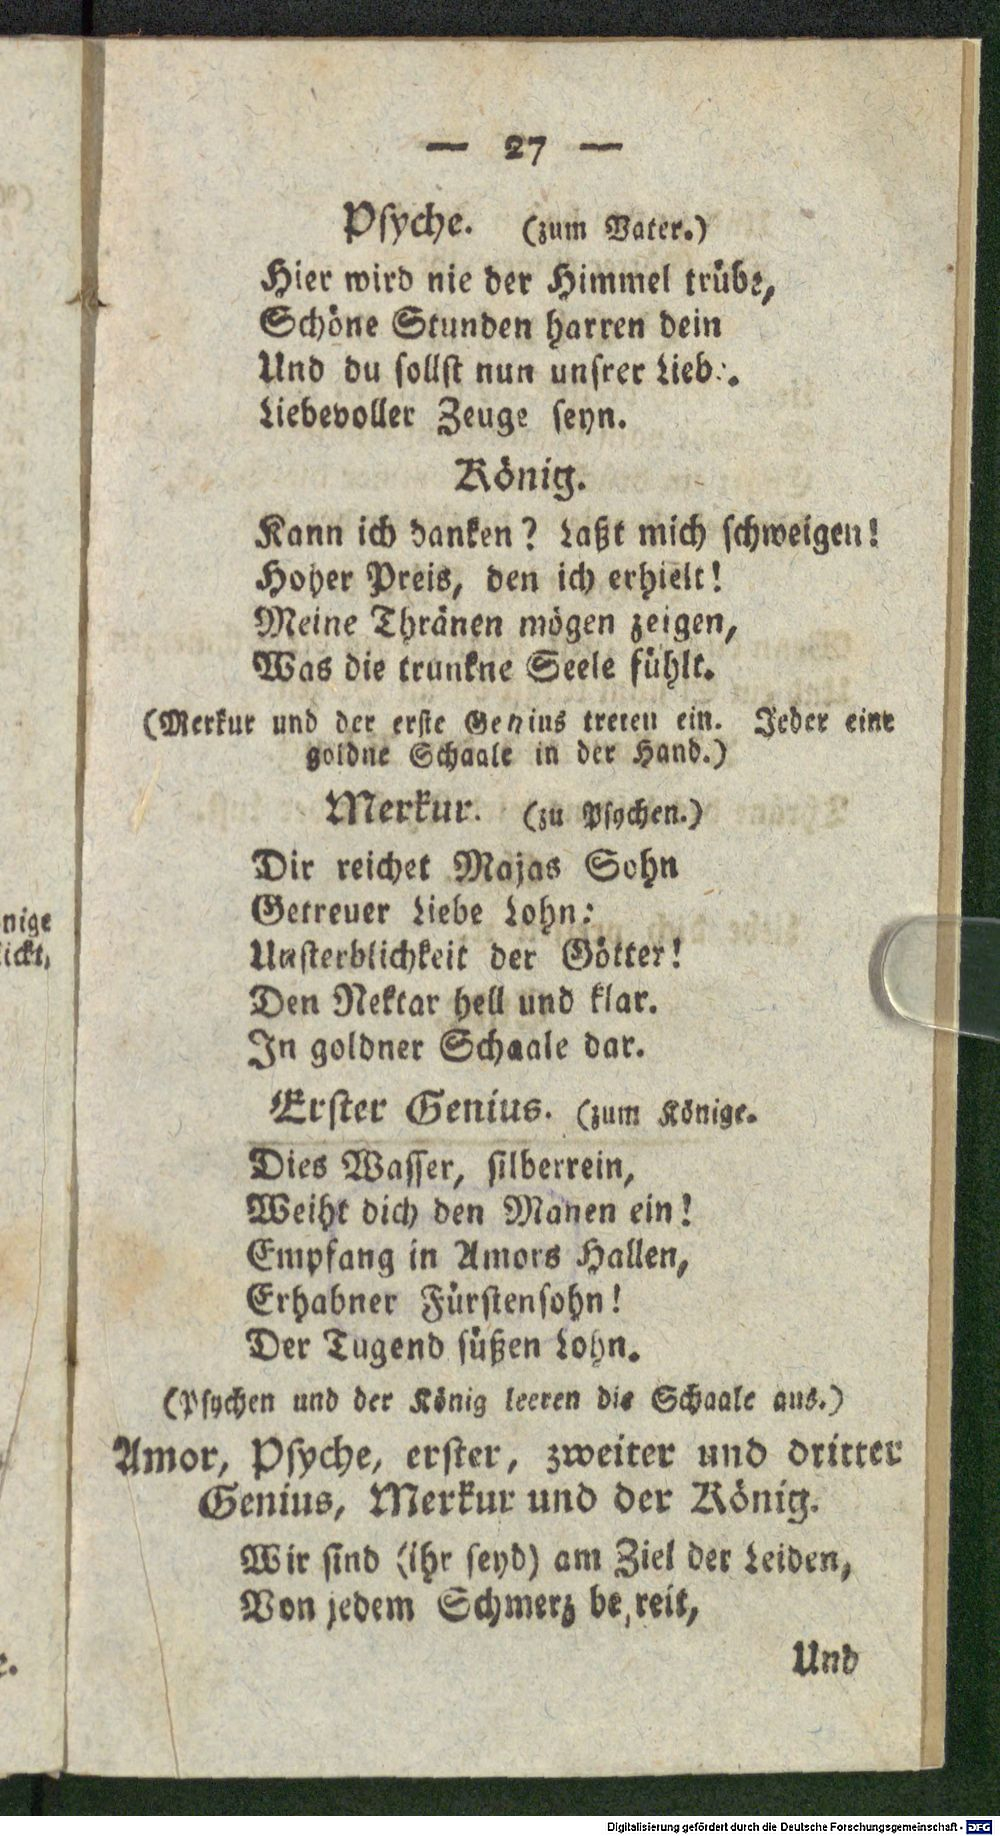 — 27 —
Pſyche. (zum Vater.)
Hier wird nie der Himmel trübe,
Schöne Stunden harren dein
Und du ſollſt nun unſrer Lieb.
Liebevoller Zeuge ſeyn.
König.
Kann ich danken? Laßt mich ſchweigen!
Hoher Preis, den ich erhielt!
Meine Thränen mögen zeigen,
Was die trunkne Seele fühlt.
(Merkur und der erſte Genius treten ein. Jeder eine
goldne Schaale in der Hand.)
Merkur. (zu Pſychen.)
Dir reichet Majas Sohn
Getreuer Liebe Lohn:
Unſterblichkeit der Götter!
Den Nektar hell und klar.
In goldner Schaale dar.
Erſter Genius. (zum Könige.
Dies Waſſer, ſilberrein,
Weiht dich den Manen ein!
Empfang in Amors Hallen,
Erhabner Fürſtenſohn!
Der Tugend ſüßen Lohn.
(Pſychen und der König leeren die Schaale aus.)
Amor, Pſyche, erſter, zweiter und dritter
Genius, Merkur und der König.
Wir ſind (ihr ſeyd) am Ziel der Leiden,
Von jedem Schmerz be,reit,
Und
nige
ickt,
e.
Digitalisierung gefördert durch die Deutsche Forschungsgemeinschaft - DFG